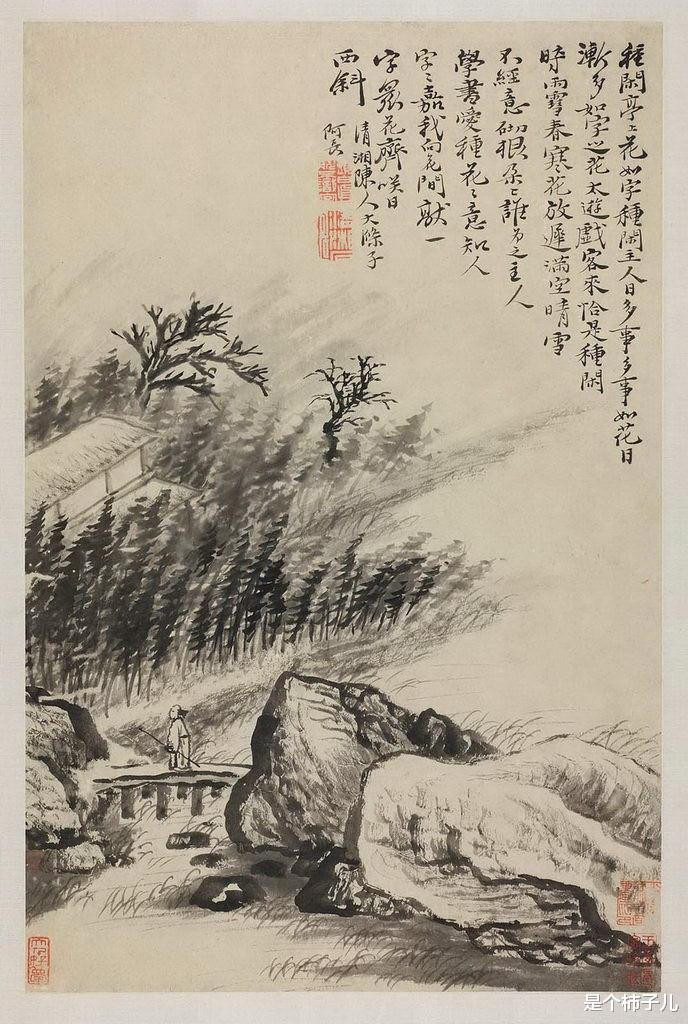 種閑亭上花如字種閑主人日多事多事如花日
漸多如字之花太遊戲客來恰是種閑
時雨雪春寒花放遲滿空晴雪
不經意砌根朵朵誰為之主人
學書愛種花花意知人
字字嘉我向花間獻一
字眾花齊笑日
西斜
清湘陳人大滌子
阿長
是个柿子儿